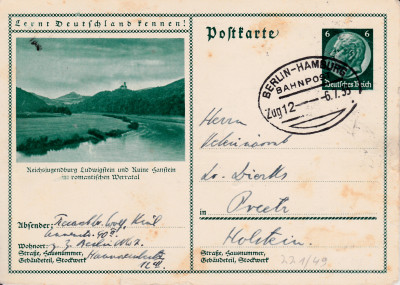 Lernt Deutschland kennen!
Reichsjugendburg Ludwigstein und Ruine Hanstein
im romantischen Werratal
Absender:
Wohnort:
Straße, Hausnummer,
Gebäudeteil, Stockwerk
Postkarte
6 6
Deutsches Reich
BERLIN-HAMBURG
BAHNPOST
Zug 12 -6.1.35
Herrn
Dr. Dierks
in Preetz
Holstein.
Straße, Hausnummer,
Gebäudeteil, Stockwerk
221/49